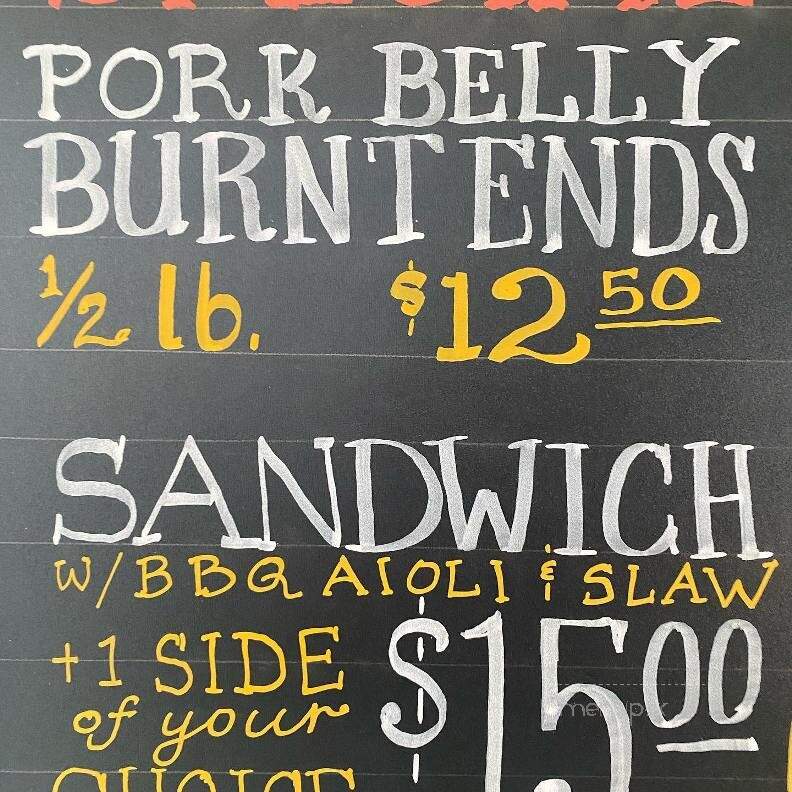 PORK BELLY
BURNT ENDS
1/2 lb. $12 50
SANDWICH
W/ BBQ AIOLI & SLAW
+1 SIDE $15 00
of your
CHOICE